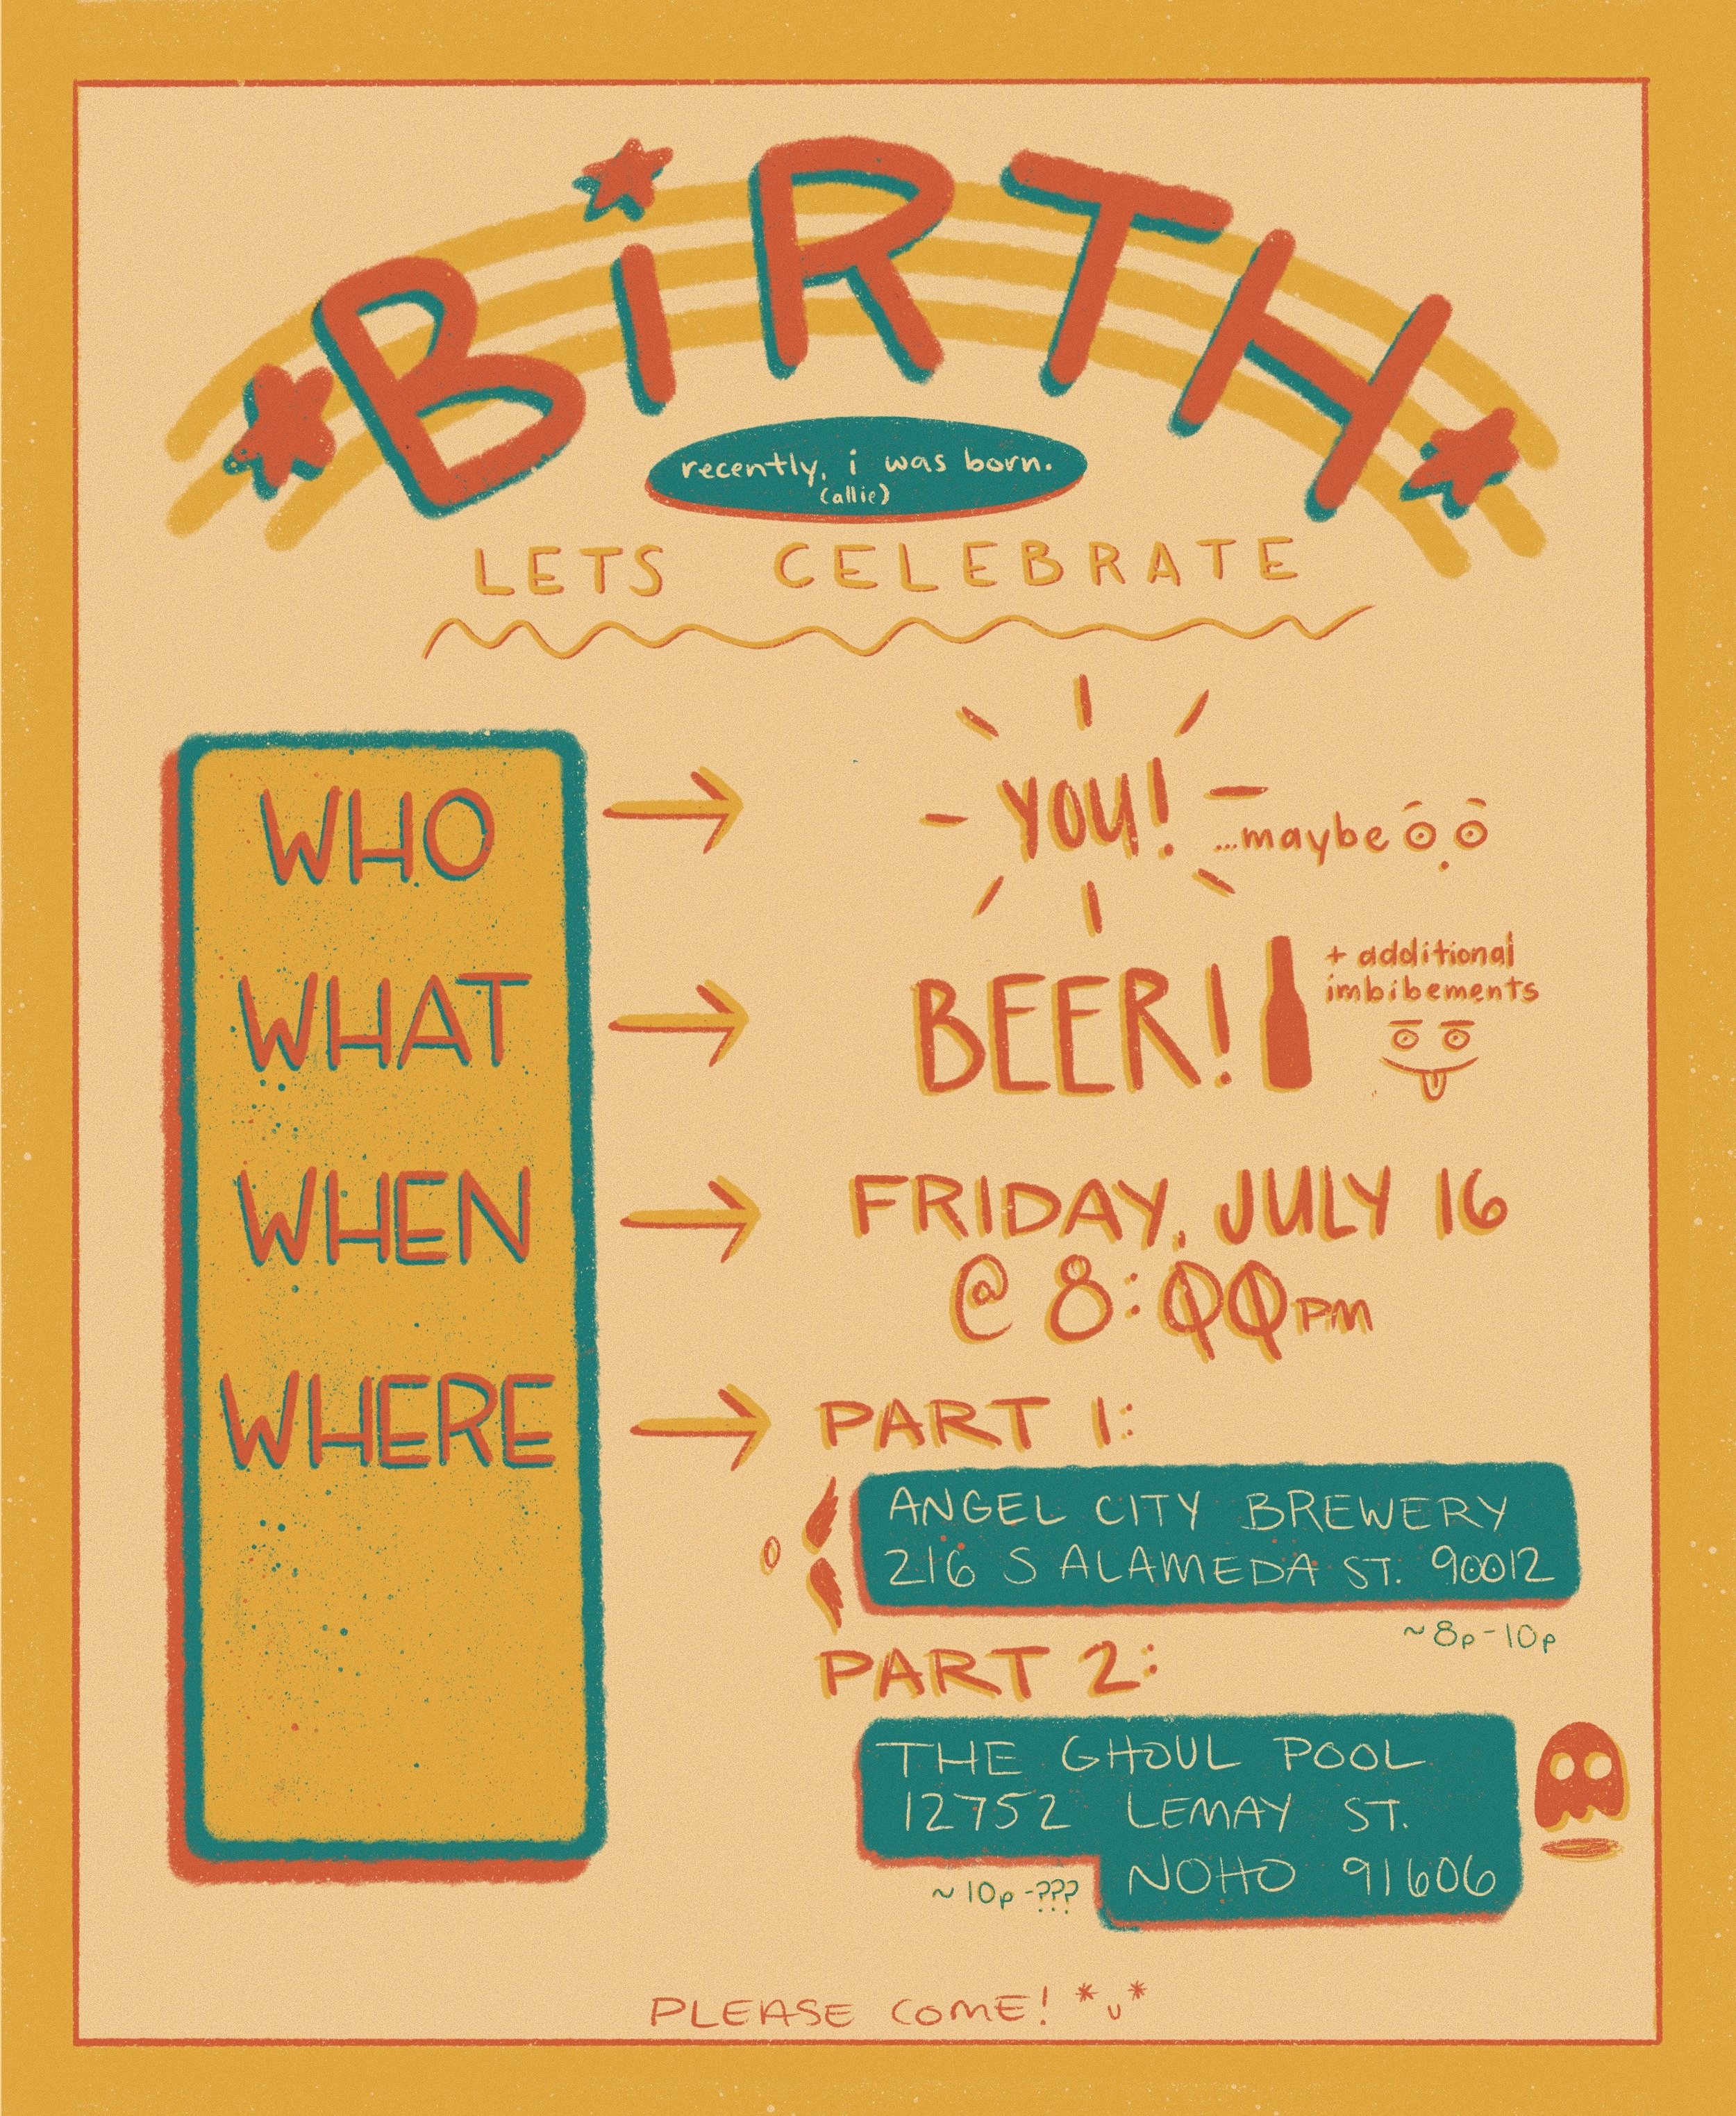 BiRTH
recently, i was born.
(allie)
LETS CELEBRATE
WHO
YOU!
...maybe
WHAT
BEER!
+ additional
imbibements
WHEN
FRIDAY, JULY 16
@ 8:00PM
WHERE
PART 1:
ANGEL CITY BREWERY
216 S ALAMEDA ST. 90012
~8p-10p
PART 2:
THE GHOUL POOL
12752 LEMAY ST.
NOHO 91606
~10p-???
PLEASE COME! *u*